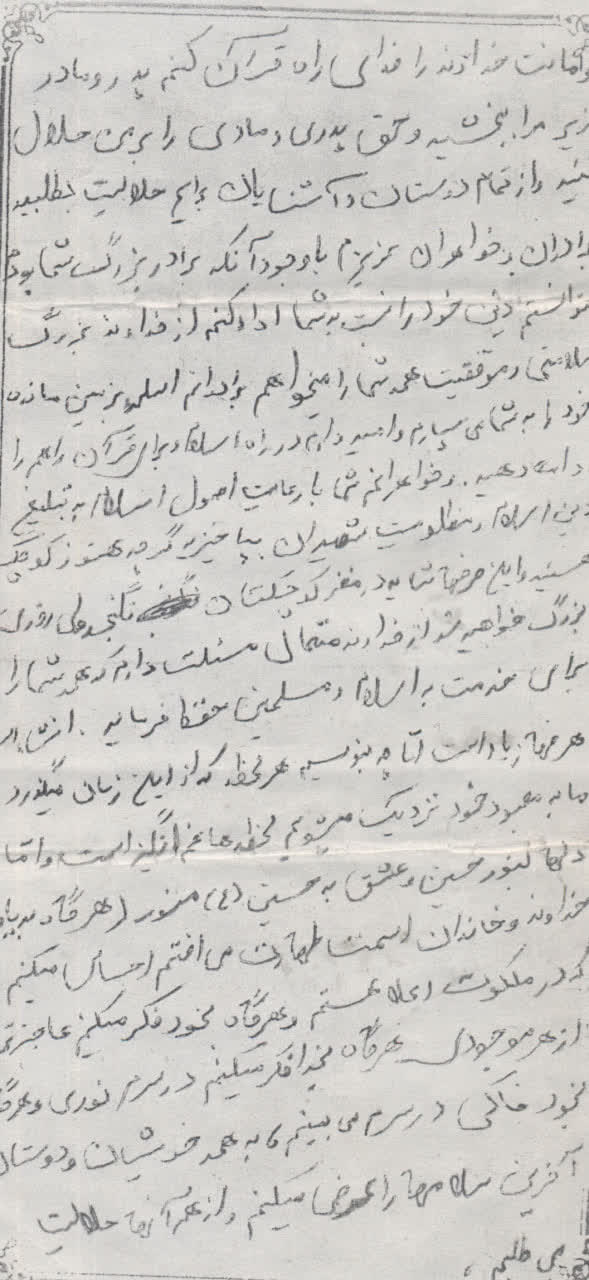 و امانت خداوند را فدای راه قرآن کنم پدر و مادر
عزیز مرا ببخشید و حق پدری و مادری را بر من حلال
کنید و از تمام دوستان و آشنایان برایم حلالیت بطلبید
برادران و خواهران عزیزم با وجود آنکه برادر بزرگ شما بودم
نتوانستم دین خود را نسبت به شما ادا کنم از خداوند بزرگ
سلامتی و موفقیت همه شما را میخواهم برادرانم اسلحه بزمین مانده
خود را به شما می سپارم و امید دارم در راه اسلام و برای قرآن راهم را
ادامه دهید. و خواهرانم شما با رعایت اصول اسلام به تبلیغ
دین اسلام و مظلومیت شهیدان بپا خیزید گرچه هنوز کوچک
هستید و این حرفها شاید در مغز کوچکتان نگنجد ولی روزی
بزرگ خواهید شد از خداوند متعال مسئلت دارم که همه شما را
برای خدمت به اسلام و مسلمین حفظ فرماید. انشاءالله
حرفها زیاد است اما چه بنویسیم هر لحظه که از این زمان میگذرد
ما به معبود خود نزدیک میشویم لحظه ها غم انگیز است و اما
دلها بنور حسین و عشق به حسین (ع) منور هرگاه به یاد
خداوند و خاندان اسمت طهارت می افتم احساس میکنم
که در ملکوت اعلا هستم و هرگاه بخود فکر میکنم عاجزتر
از هر موجودی هرگاه بخدا فکر میکنم در سرم نوری و هرگاه
بخود خاکی در سرم می بینم، به همه خویشان و دوستان
آخرین سلامها را عرض میکنم و از همه آنها حلالیت
می طلبم،